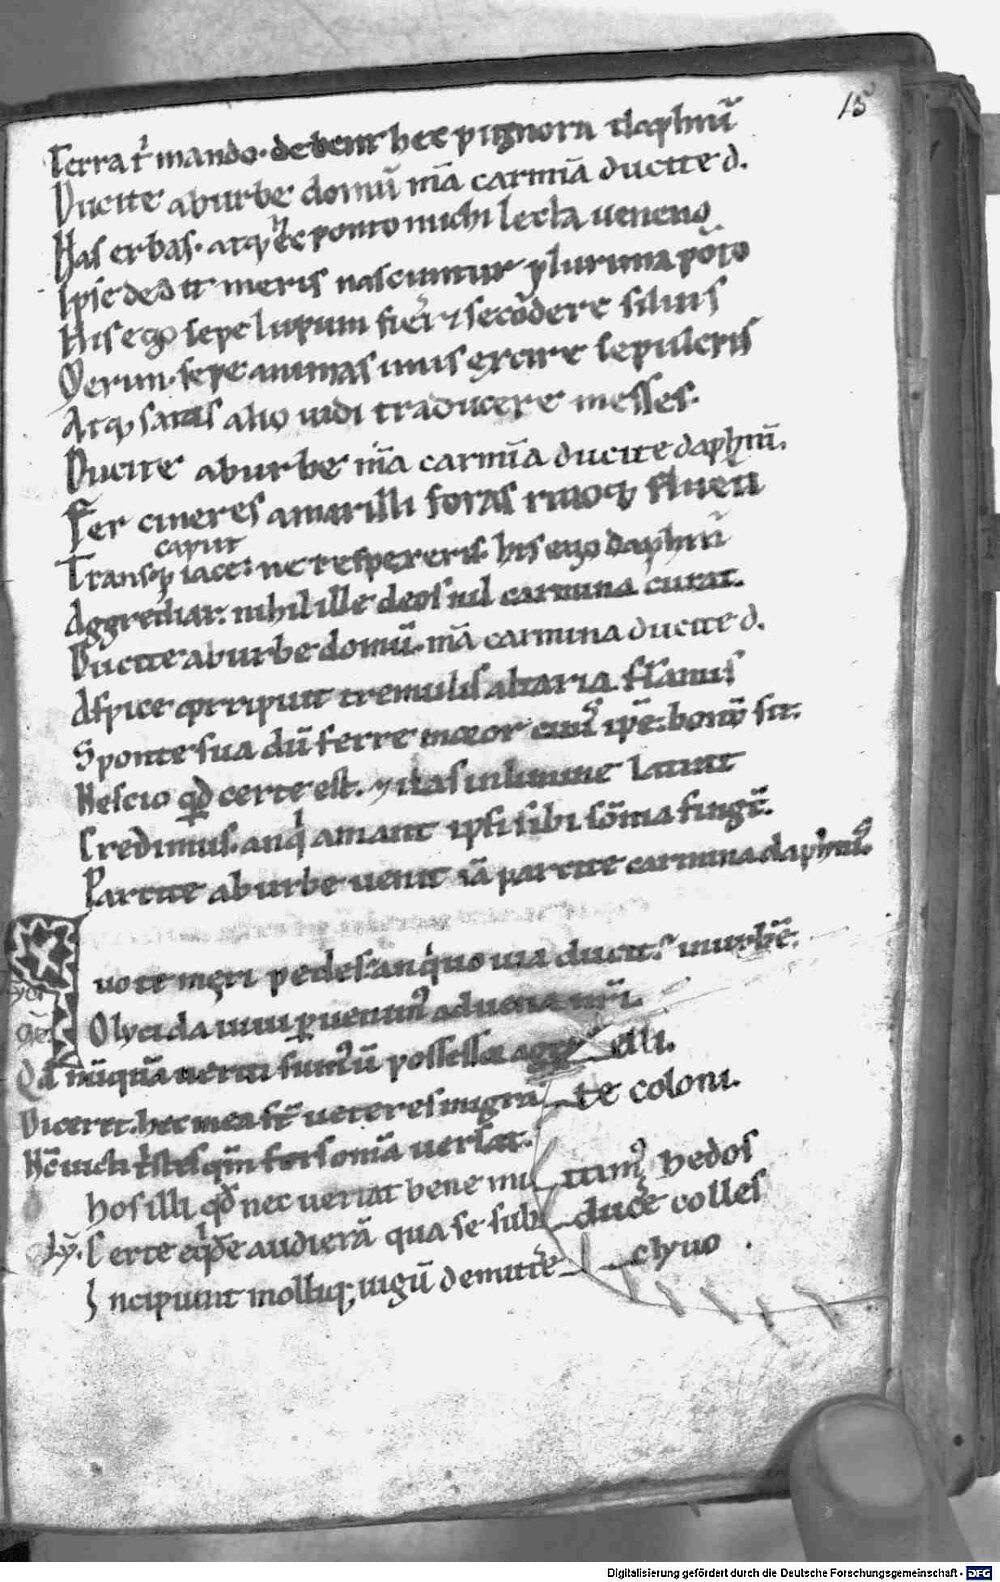 15
Terra t' mando. debent hec pignora daphnī
Ducite aburbe domū m̄a carmīa ducite d.
Has erbas. atq; hec ponto michi lecta ueneno
Ipse dedit meris nascuntur plurima pōto
His ego sepe lupum fieri & se cōdere siluis
Merim. sepe animas imis excire sepulcris
Atq; satas alio uidi traducere messes.
Ducite aburbe m̄a carmīa ducite daphnī.
Fer cineres amarilli foras riuoq; fluēti
caput
Transq; iace: ne respexeris. his ego daphnī
Aggrediar: nihil ille deos nil carmina curat.
Ducite aburbe domū. m̄a carmina ducite d.
Aspice corripuit tremulis altaria flamis
Sponte sua dū ferre moror cinis ipse: bonū sit.
Nescio qd certe est. & ilas inlimine latrat
Credimus. an q' amant ipsi sibi sōnia fingt̄.
Parcite aburbe uenit iā parcite carmina daphnis.
uo te meri pedes: an q'uo uia ducit? inurbē.
O lycida uiui peruenim' aduena nr̄i.
Qd nūquā ueriti sum' ū possessor age elli.
Diceret. hec mea st̄ ueteres migra te coloni.
Nc̄ uicti t'stes qm̄ fors omīa uersat.
hos illi qd nec uertat bene mi ttim' hedos
Ly. Certe eq'de audierā qua se sub ducē colles
Incipiunt molliq; iugū demittē clyuo
Digitalisierung gefördert durch die Deutsche Forschungsgemeinschaft - DFG